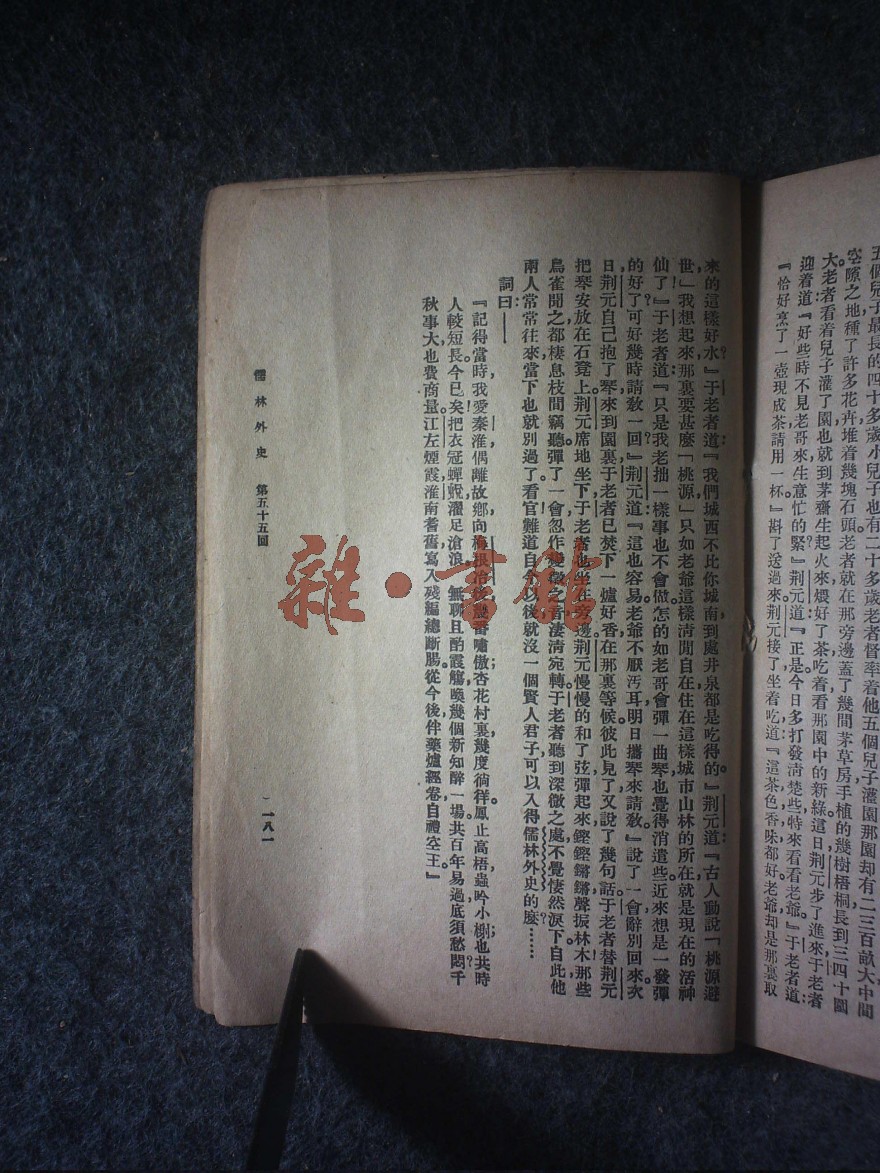 五個兒子最長的四十多歲小兒子也有二十多歲老者督率着他五個兒子灌園那園却有二三百畝大中間
空隙之地種了許多花卉堆着幾塊石頭老者就在那旁邊蓋了幾間茅草房手植的幾樹梧桐長到三四十圍
大。老者看着兒子灌了園也就到茅齋生起火來煨好了茶吃着看那園中的新綠這日荆元步了進來于老者
迎着道『好些時不見老哥來生意忙的緊』荆元道『正是今日多打發清楚些特來看看老爺。』于老者道：
『恰好烹了一壺現成茶請用一杯』斟了送過來荆元接了坐着吃道『這茶色香味都好老爺却是那裏取
來的這樣好水？』于老者道：『我們城西不比你城南到處井泉都是吃得的。』荆元道：『古人動說「桃源避
世」我想起來那裏要甚麽「桃源」只如老爺這樣清閒自在住在這樣城市山林的所在就是現在的活神
仙了！』于老者道：『只是我老拙一樣事也不會做。怎的如老哥會彈一曲琴也覺得消遣些近來想是一發彈
的好了可好幾時請教一回？』荆元道：『這也容易老爺不厭汚耳明日攜琴來請教。』說了一會辭別回來次
日荆元自己抱了琴來到園裏于老者已焚下一爐好香在那裏等候。彼此見了又說了幾句話于老者替荆元
把琴安放在石凳上。荆元席地坐下于老者也坐在旁邊荆元慢慢的和了弦彈起來鏗鏗鏘鏘聲振林木那些
鳥雀聞之都棲息枝間竊聽彈了一會忽作變徵之音淒清宛轉于老者聽到深微之處不覺悽然淚下。自此他
兩人常常往來當下也就別過了。看官！難道自今以後就沒一個賢人君子可以入得儒林外史的麽？……
詞曰：——
『記得當時我愛秦淮偶離故鄉向梅根冶後幾番嘯傲杏花村裏幾度徜徉鳳止高梧蟲吟小榭也共時
人較短長。今已矣！把衣冠蟬蛻濯足滄浪無聊且酌霞觴喚幾個新知醉一場共百年易過底須愁悶千
秋事大也費商量。江左煙霞淮南耆舊寫入殘編總斷腸。從今後伴藥爐經卷自禮空王。』
儒林外史　第五十五回
一八一
雜·書館